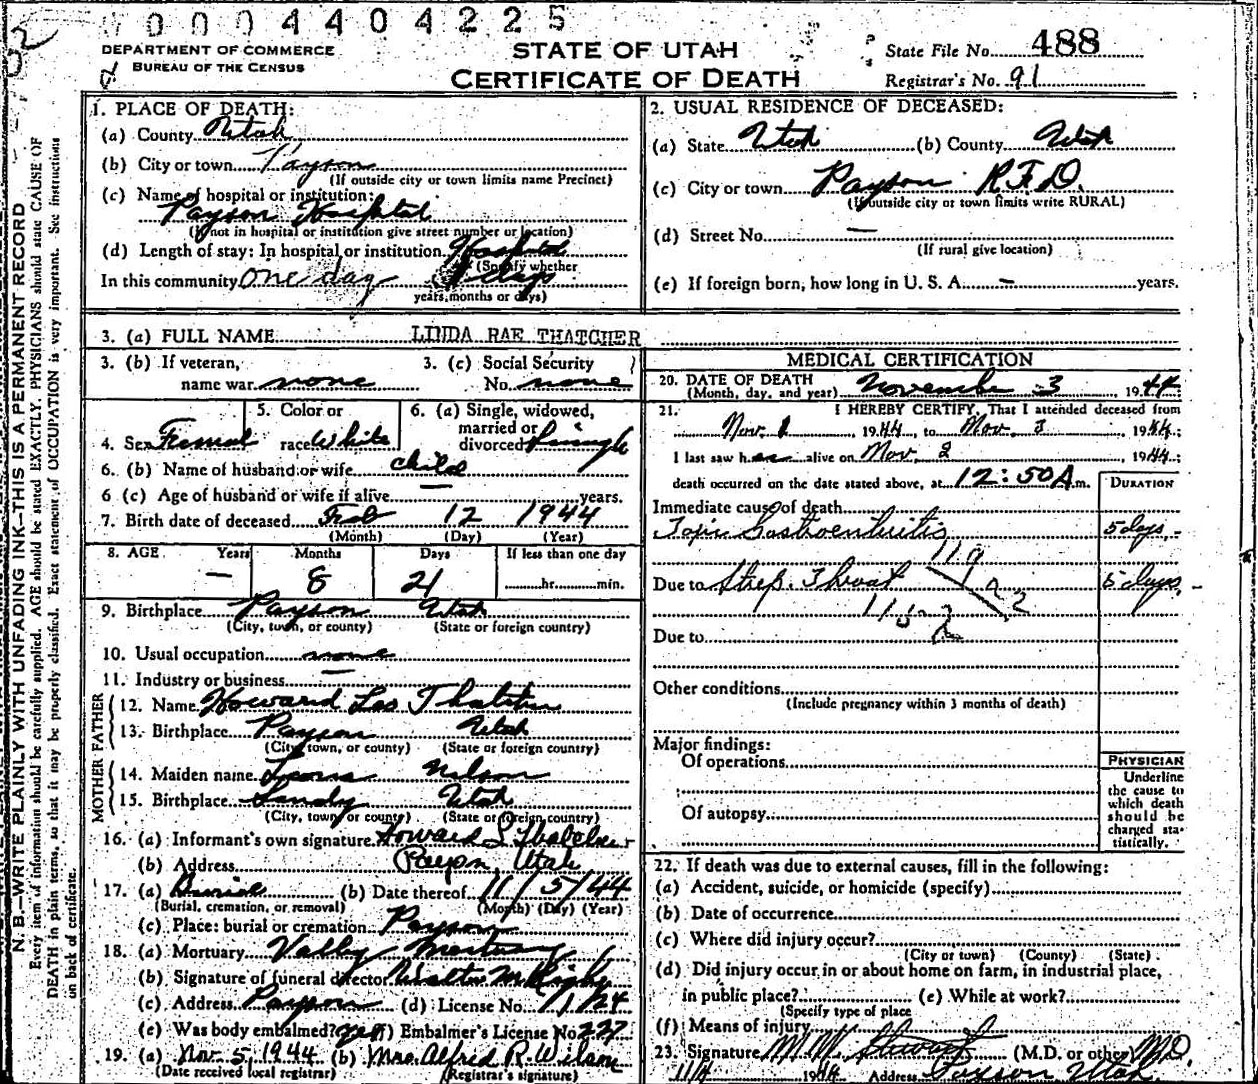 0004404225
DEPARTMENT OF COMMERCE
BUREAU OF THE CENSUS
STATE OF UTAH
CERTIFICATE OF DEATH
State File No. 488
Registrar's No. 91
N. B.—WRITE PLAINLY WITH UNFADING INK—THIS IS A PERMANENT RECORD
Every item of information should be carefully supplied. AGE should be stated EXACTLY. PHYSICIANS should state CAUSE OF
DEATH in plain terms, so that it may be properly classified. Exact statement of OCCUPATION is very important. See instructions
on back of certificate.
1. PLACE OF DEATH:
(a) County Utah
(b) City or town Payson
(If outside city or town limits name Precinct)
(c) Name of hospital or institution:
Payson Hospital
(If not in hospital or institution give street number or location)
(d) Length of stay: In hospital or institution Hospital
(Specify whether
In this community One day days
years, months or days)
2. USUAL RESIDENCE OF DECEASED:
(a) State Utah (b) County Utah
(c) City or town Payson R.F.D.
(If outside city or town limits write RURAL)
(d) Street No. —
(If rural give location)
(e) If foreign born, how long in U. S. A. — years.
3. (a) FULL NAME LINDA RAE THATCHER
3. (b) If veteran, 3. (c) Social Security
name war none No. none
4. Sex Femal 5. Color or race White 6. (a) Single, widowed, married or divorced Single
6. (b) Name of husband or wife child
6 (c) Age of husband or wife if alive — years.
7. Birth date of deceased Feb 12 1944
(Month) (Day) (Year)
8. AGE Years Months Days If less than one day
— 8 21 hr. min.
9. Birthplace Payson Utah
(City, town, or county) (State or foreign country)
10. Usual occupation none
11. Industry or business —
FATHER
12. Name Howard Leo Thatcher
13. Birthplace Payson Utah
(City, town, or county) (State or foreign country)
MOTHER
14. Maiden name Nelson
15. Birthplace Sandy Utah
(City, town, or county) (State or foreign country)
16. (a) Informant's own signature Howard L Thatcher
(b) Address Payson Utah
17. (a) Burial (b) Date thereof 11/5/44
(Burial, cremation, or removal) (Month) (Day) (Year)
(c) Place: burial or cremation Payson
18. (a) Mortuary Valley Mortuary
(b) Signature of funeral director
(c) Address Payson (d) License No. 124
(e) Was body embalmed? yes (f) Embalmer's License No. 227
19. (a) Nov 5, 1944 (b) Mrs. Alfred R. Wilson
(Date received local registrar) (Registrar's signature)
MEDICAL CERTIFICATION
20. DATE OF DEATH November 3 1944
(Month, day, and year)
21. I HEREBY CERTIFY, That I attended deceased from
Nov. 1 1944, to Nov. 3 1944;
I last saw her alive on Nov. 2 1944;
death occurred on the date stated above, at 12:50 A m.
DURATION
Immediate cause of death
Toxic Gastroenteritis 5 days
119
Due to Strep. Throat 5 days
115-2
Due to
Other conditions
(Include pregnancy within 3 months of death)
Major findings:
Of operations
Of autopsy
PHYSICIAN
Underline
the cause to
which death
should be
charged sta-
tistically.
22. If death was due to external causes, fill in the following:
(a) Accident, suicide, or homicide (specify)
(b) Date of occurrence
(c) Where did injury occur?
(City or town) (County) (State)
(d) Did injury occur in or about home on farm, in industrial place,
in public place? (e) While at work?
(Specify type of place
(f) Means of injury
23. Signature M. M. Stewart (M.D. or other) M.D.
11/4 1944 Address Payson Utah